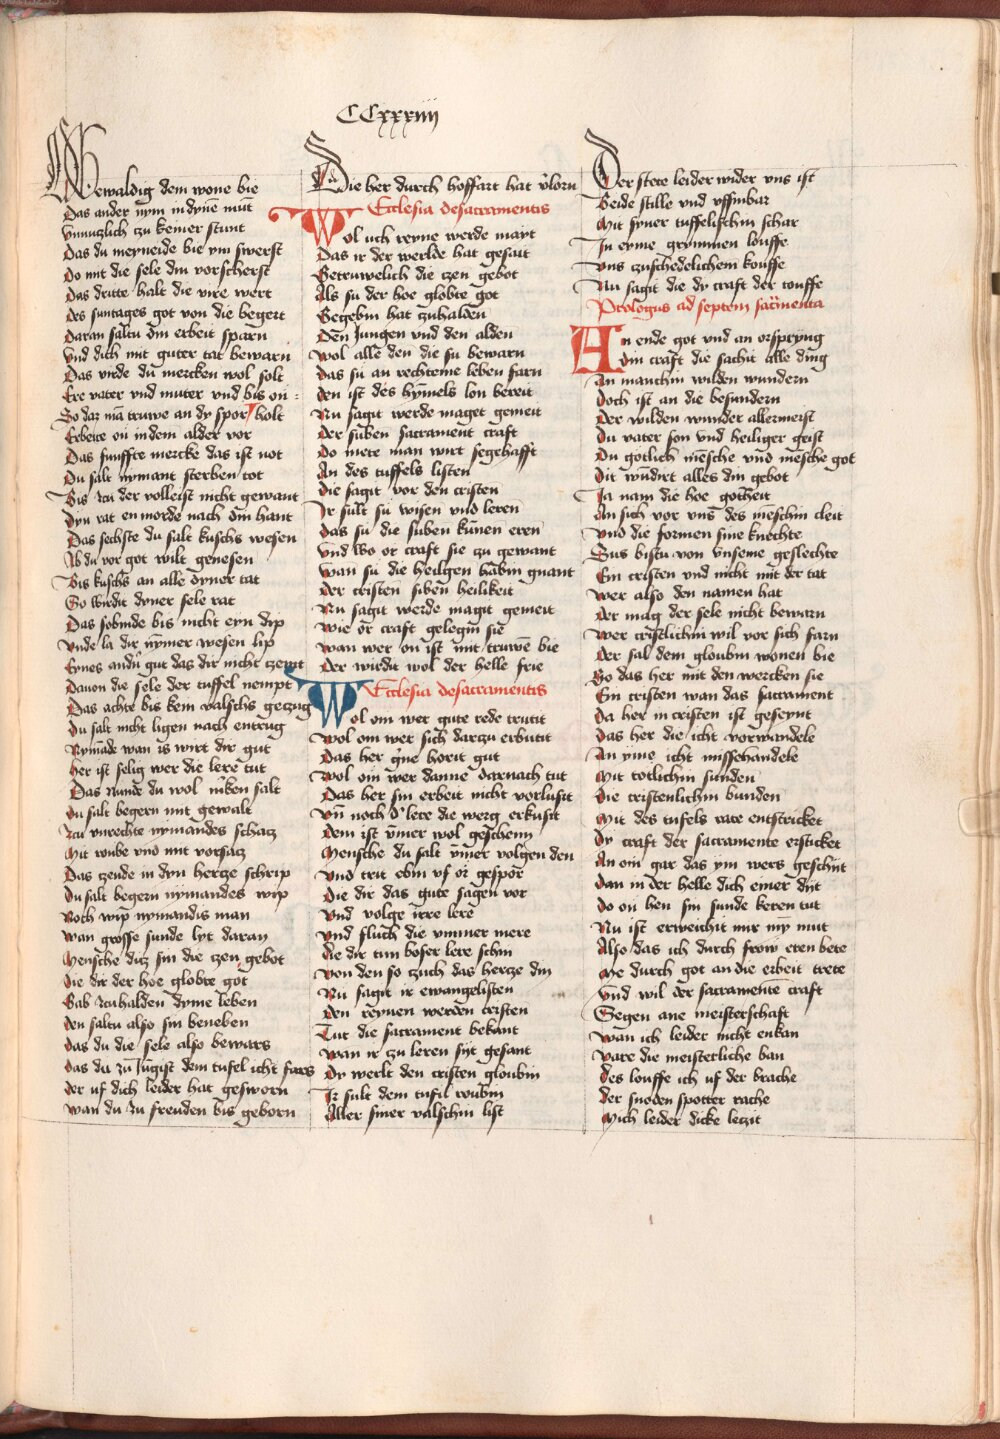 CCxxxiiij
Gewaldig dem wone bie
Das ander nym in dynē mūt
Vnnutzlich zu keiner stunt
Das du meyneide bie ym swerst
Do mit die sele din vorscherst
Das dritte halt die vire wert
Des suntages got von die begert
Daran saltu din erbeit sparn
Vnd dich mit guter tat bewarn
Das virde du mercken wol solt
Ere vater vnd muter vnd bis on
So daz mā truwe an dy spor / holt
Erbeite on in dem alder vor
Das funffte mercke das ist not
Du salt nymant sterben tot
Bis zcu der volleist nicht gewant
Dyn rat en morde nach din hant
Das sechste du salt kuschs wesen
Ab du vor got wilt genesen
Bis kuschs an alle dyner tat
So wirdit dyner sele rat
Das sobinde bis nicht eyn dip
Vnde la dir nȳmer wesen lip
Eines andn̄ gut das dir nicht zemt
Dauon die sele der tuffel nempt
Das achte bis kein valschs geczug
Du salt nicht ligen nach entrug
Nymāde wan is wirt dir gut
Her ist selig wer die lere tut
Das nunde du wol niken salt
Du salt begeren mit gewalt
Zcu vnrechte nymandes schacz
Mit roube vnd mit vorsacz
Das zende in dyn hercze schrip
Du salt begern nymandes wip
Noch wip nymandis man
Wan grosse sunde lyt daran
Mensche dicz sin die czen gebot
Die dir der hoe globte got
Gab zcuhalden dyme leben
Den saltu also sin beneben
Das du die sele also bewars
Das du zū Jūgist dem tufel icht fars
Der uf dich leider hat gesworn
Wan du zu freuden bis geborn
Die her durch hoffart hat v̄lorn
Ecclesia de sacramentis
Wol uch reyne werde mayt
Das ir der werlde hat gesait
Getruwelich die czen gebot
Als su der hoe globte got
Gegebin hat zuhalden
Den Jungen vnd den alden
Wol alle den die su bewarn
Das su an rechteme leben farn
Den ist des hȳmels lon bereit
Nu sagit werde maget gemeit
Der suben sacrament craft
Do mete man wirt segehafft
An des tuffels listen
Die sagit vor den cristen
Ir sült su wisen vnd leren
Das su die suben kūnen eren
Vnd wo or craft sie zu gewant
Wan su die heilgen habin gnant
Der cristen siben heilikeit
Nu sagit werde magit gemeit
Wie or craft gelegin sie
Wan wer on ist mit truwen bie
Der wirdit wol der helle frie
Ecclesia de sacramentis
Wol om wer gute rede trutit
Wol om wer sich darzu erbutit
Das her gn̄e horit gut
Wol om wer danne darnach tut
Das her sin erbeit nicht vorlusit
Vn̄ noch d' lere die werg erkusit
Dem ist ȳmer wol geschenn
Mensche du salt ȳmer volgen den
Vnd trit ebin vf or gespor
Die dir das gute sagen vor
Vnd volge irre lere
Vnd fluch die ummer mere
Die dir tun boser lere schin
Von den so zuch das hercze din
Nu sagit ir ewangelisten
Den reynen werden cristen
Tut die sacrament bekant
Wan ir zu leren sijt gesant
Dy werlt den cristen gloubin
Ir sult dem tufil roubin
Aller siner valschin list
Der stete leider wider vns ist
Beide stille vnd vffinbar
Mit syner tuffelischin schar
In eyme grymmen louffe
Vns zuschedelichem kouffe
Nu sagit die dy craft der touffe
Prologus ad septem sacr̄menta
An ende got vnd an orspryng
Din craft die sachit alle ding
An manchin wilden wundern
Doch ist an die besundern
Der wilden wunder allermeist
Du vater son vnd heiliger geist
Du gotlich mēsche vnd mēsche got
Dit wūdirt alles din gebot
Ia nam die hoe gotheit
An sich vor vns des menschin cleit
Vnd die formen sine knechte
Sus bistu von vnseme geslechte
Ein cristen vnd nicht mit der tat
Wer also den namen hat
Der mag der sele nicht bewarn
Wer cristlichin wil vor sich farn
Der sal dem gloubin wonen bie
So das her mit den wercken sie
Ein cristen wan das sacrament
Da her in cristen ist geseynt
Das her die icht vorwandele
An yme icht missehandele
Mit totlichin sunden
Die cristenlichin bunden
Mit des tufels rate entstricket
Dy craft der sacramente ersticket
An om gar das ym wers geschijt
Dan in der helle dich einer dijt
Do on hen sin sunde keren tut
Nu ist erweichit mir my mut
Also das ich durch frow eren bete
Me durch got an die erbeit trete
Vnd wil der sacramente craft
Segen ane meisterschaft
Wan ich leider nicht enkan
Vare die meisterliche ban
Des louffe ich uf der brache
Der snoden spotter rache
Mich leider dicke leczit